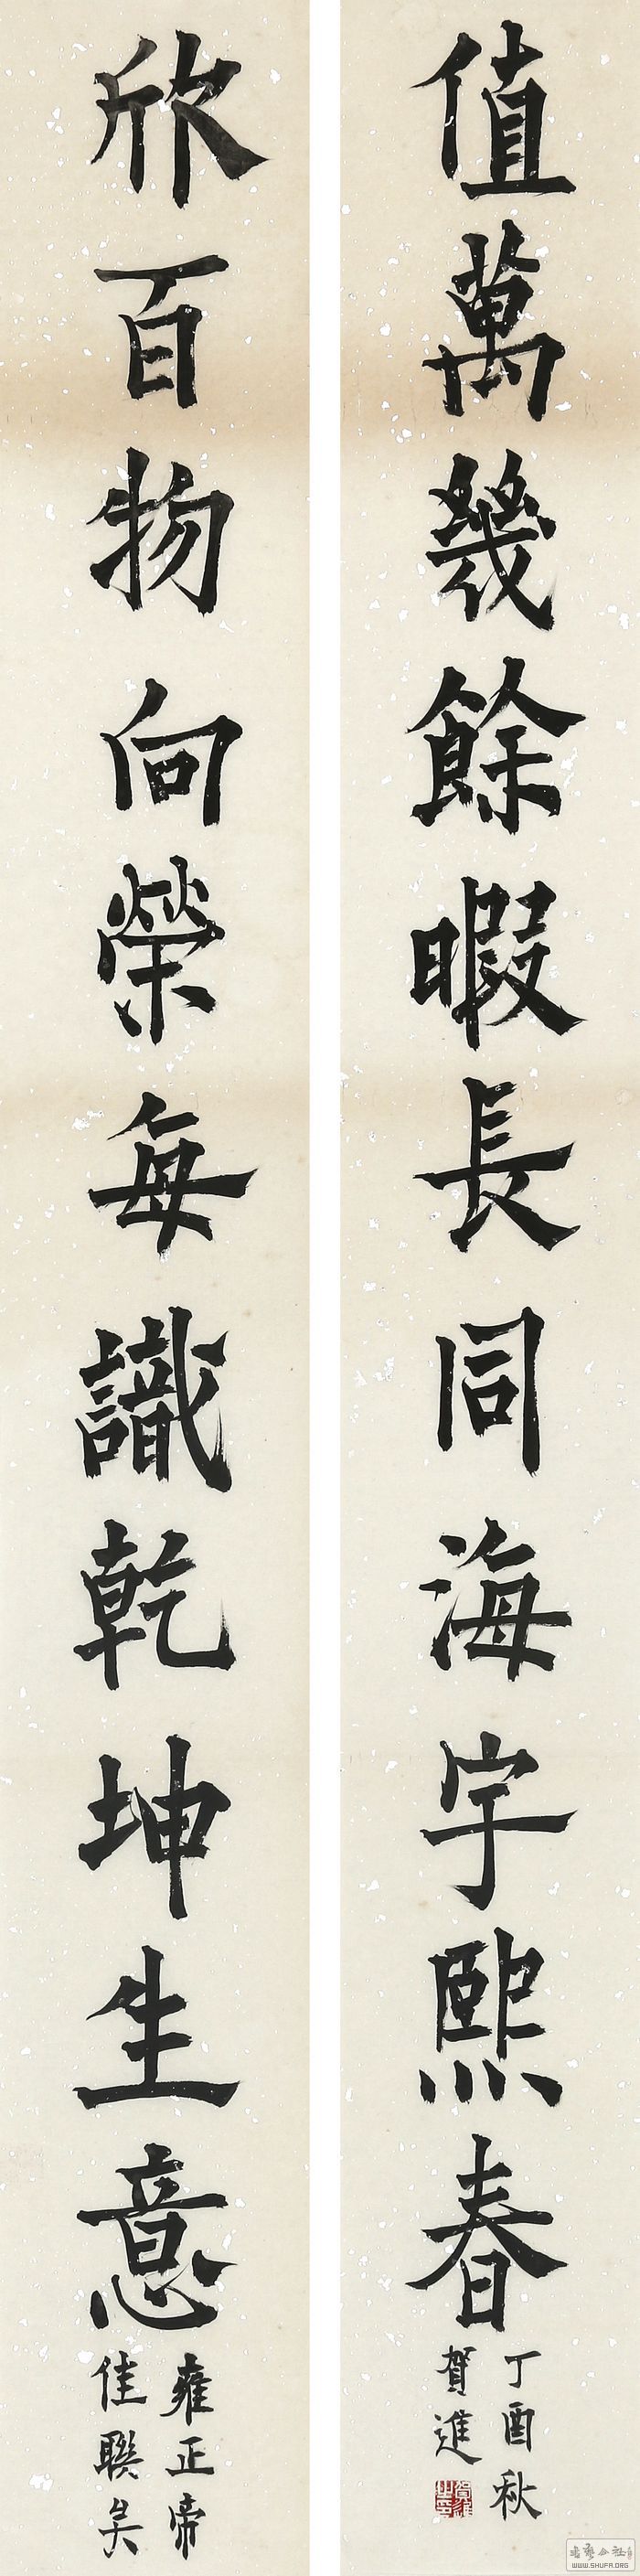 欣百物向榮每識乾坤生意
雍正帝
佳聯矣
值萬幾餘暇長同海宇熙春
丁酉秋
賀進
书艺公社
WWW.SHUFA.ORG